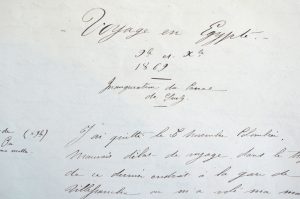 Voyage en Egypte.
9bre et Xbre
1869
Inauguration du Canal
de Suez
J'ai quitté le 8 Novembre
Mauvais début de voyage dans le
de ce dernier endroit à la gare de
Villefranche on m'a volé ma